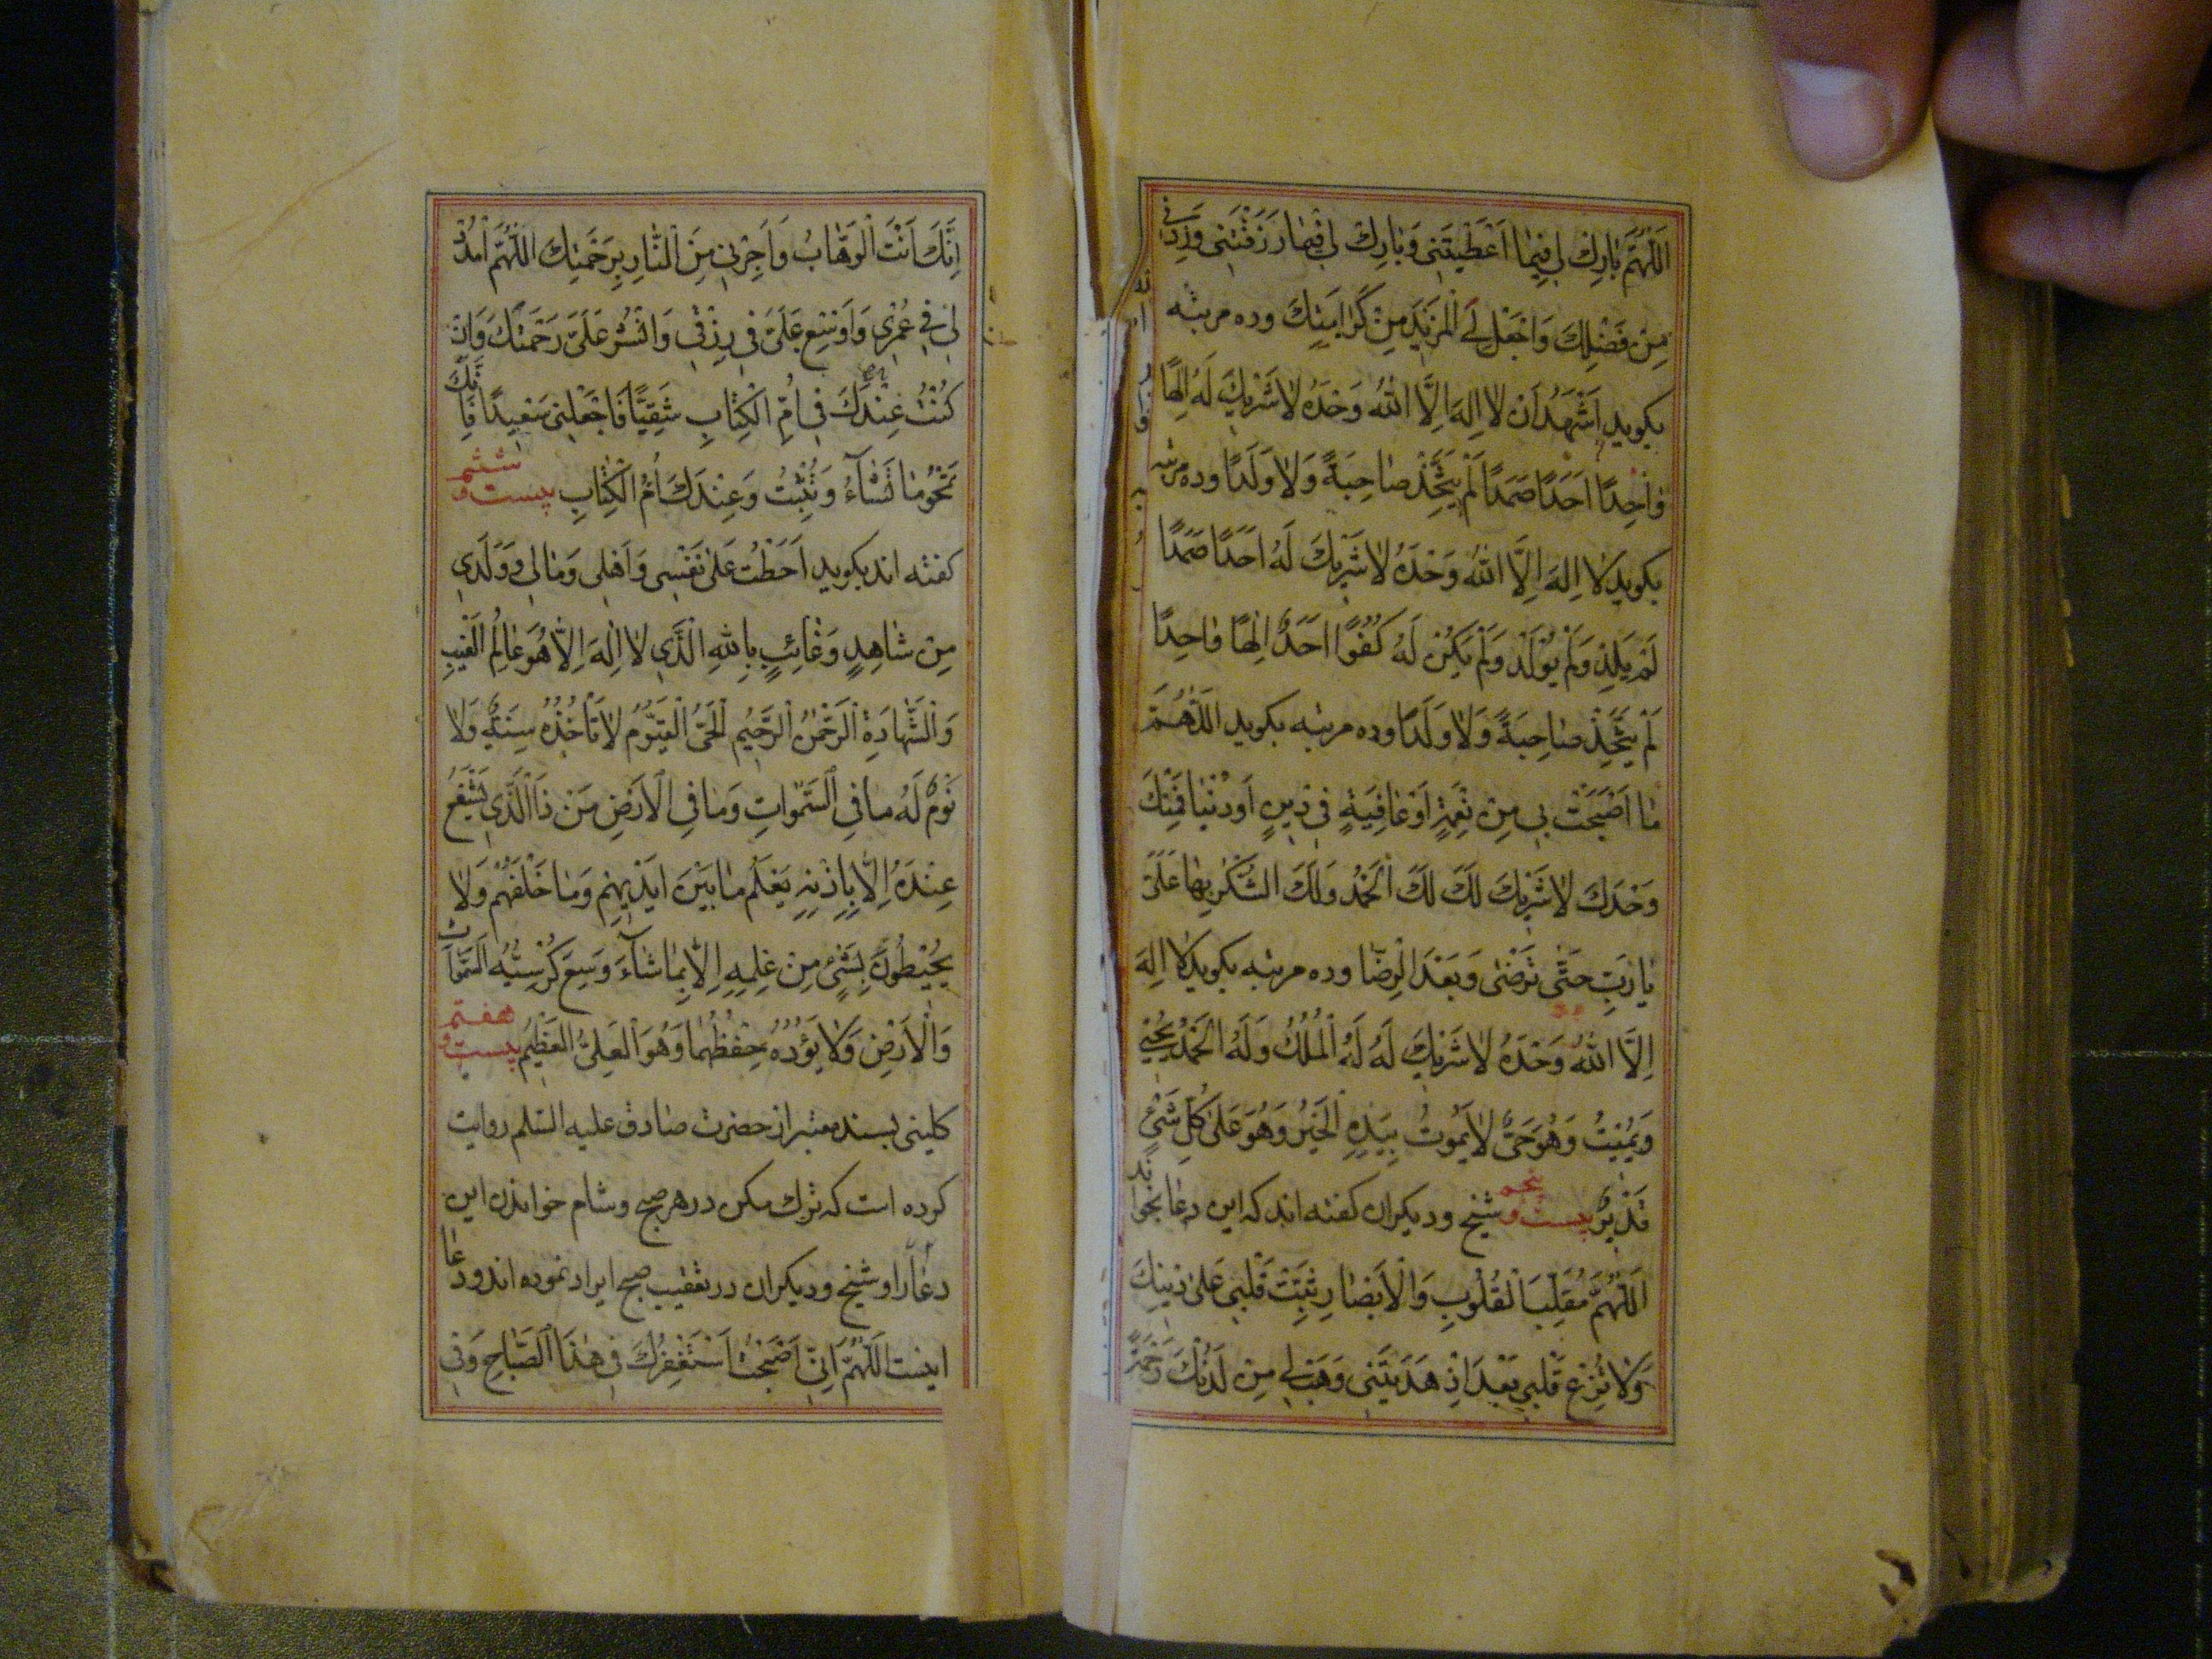 اَللّٰهُمَّ بٰارِكْ لِي فِيمٰا اَعْطَيْتَنِي وَبٰارِكْ لِي فِيمٰا رَزَقْتَنِي وَزِدْنِي
مِنْ فَضْلِكَ وَاجْعَلْ لِيَ الْمَزِيدَ مِنْ كَرٰامَتِكَ وده مرتبه
بكويد اَشْهَدُ اَنْ لٰا اِلٰهَ اِلَّا اللّٰهُ وَحْدَهُ لٰا شَرِيكَ لَهُ اِلٰهًا
وٰاحِدًا اَحَدًا صَمَدًا لَمْ يَتَّخِذْ صٰاحِبَةً وَلٰا وَلَدًا وده مرتبه
بكويد لٰا اِلٰهَ اِلَّا اللّٰهُ وَحْدَهُ لٰا شَرِيكَ لَهُ اَحَدًا صَمَدًا
لَمْ يَلِدْ وَلَمْ يُولَدْ وَلَمْ يَكُنْ لَهُ كُفُوًا اَحَدٌ اِلٰهًا وٰاحِدًا
لَمْ يَتَّخِذْ صٰاحِبَةً وَلٰا وَلَدًا وده مرتبه بكويد اَللّٰهُمَّ
مٰا اَصْبَحَتْ بِي مِنْ نِعْمَةٍ اَوْ عٰافِيَةٍ فِي دِينٍ اَوْ دُنْيٰا فَمِنْكَ
وَحْدَكَ لٰا شَرِيكَ لَكَ لَكَ الْحَمْدُ وَلَكَ الشُّكْرُ بِهٰا عَلَيَّ
يٰا رَبِّ حَتّٰى تَرْضٰى وَبَعْدَ الرِّضٰا وده مرتبه بكويد لٰا اِلٰهَ
اِلَّا اللّٰهُ وَحْدَهُ لٰا شَرِيكَ لَهُ لَهُ الْمُلْكُ وَلَهُ الْحَمْدُ يُحْيِي
وَيُمِيتُ وَهُوَ حَيٌّ لٰا يَمُوتُ بِيَدِهِ الْخَيْرُ وَهُوَ عَلٰى كُلِّ شَيْءٍ
قَدِيرٌ بيست و پنجم شيخ وديكران كفته اند كه اين دعا بخواند
اَللّٰهُمَّ مُقَلِّبَ الْقُلُوبِ وَالْاَبْصٰارِ ثَبِّتْ قَلْبِي عَلٰى دِينِكَ
وَلٰا تُزِغْ قَلْبِي بَعْدَ اِذْ هَدَيْتَنِي وَهَبْ لِي مِنْ لَدُنْكَ رَحْمَةً
اِنَّكَ اَنْتَ الْوَهّٰابُ وَاَجِرْنِي مِنَ النّٰارِ بِرَحْمَتِكَ اَللّٰهُمَّ امْدُدْ
لِي فِي عُمْرِي وَاَوْسِعْ عَلَيَّ فِي رِزْقِي وَانْشُرْ عَلَيَّ رَحْمَتَكَ وَاِنْ
كُنْتُ عِنْدَكَ فِي اُمِّ الْكِتٰابِ شَقِيًّا فَاجْعَلْنِي سَعِيدًا فَاِنَّكَ
تَمْحُو مٰا تَشٰاءُ وَتُثْبِتُ وَعِنْدَكَ اُمُّ الْكِتٰابِ بيست و ششم
كفته اند بكويد اَحَطْتُ عَلٰى نَفْسِي وَاَهْلِي وَمٰالِي وَوَلَدِي
مِنْ شٰاهِدٍ وَغٰائِبٍ بِاللّٰهِ الَّذِي لٰا اِلٰهَ اِلّٰا هُوَ عٰالِمُ الْغَيْبِ
وَالشَّهٰادَةِ الرَّحْمٰنُ الرَّحِيمُ الْحَيُّ الْقَيُّومُ لٰا تَأْخُذُهُ سِنَةٌ وَلٰا
نَوْمٌ لَهُ مٰا فِي السَّمٰوٰاتِ وَمٰا فِي الْاَرْضِ مَنْ ذَا الَّذِي يَشْفَعُ
عِنْدَهُ اِلّٰا بِاِذْنِهِ يَعْلَمُ مٰا بَيْنَ اَيْدِيهِمْ وَمٰا خَلْفَهُمْ وَلٰا
يُحِيطُونَ بِشَيْءٍ مِنْ عِلْمِهِ اِلّٰا بِمٰا شٰاءَ وَسِعَ كُرْسِيُّهُ السَّمٰوٰاتِ
وَالْاَرْضَ وَلٰا يَؤُدُهُ حِفْظُهُمٰا وَهُوَ الْعَلِيُّ الْعَظِيمُ بيست و هفتم
كلينى بسند معتبر از حضرت صادق عليه السلم روايت
كرده است كه ترك مكن در هر صبح وشام خواندن اين
دعا را و شيخ وديكران در تعقيب صبح ايراد نموده اند ودعا
اينست اَللّٰهُمَّ اِنِّي اَصْبَحْتُ اَسْتَغْفِرُكَ فِي هٰذَا الصَّبٰاحِ وَفِي